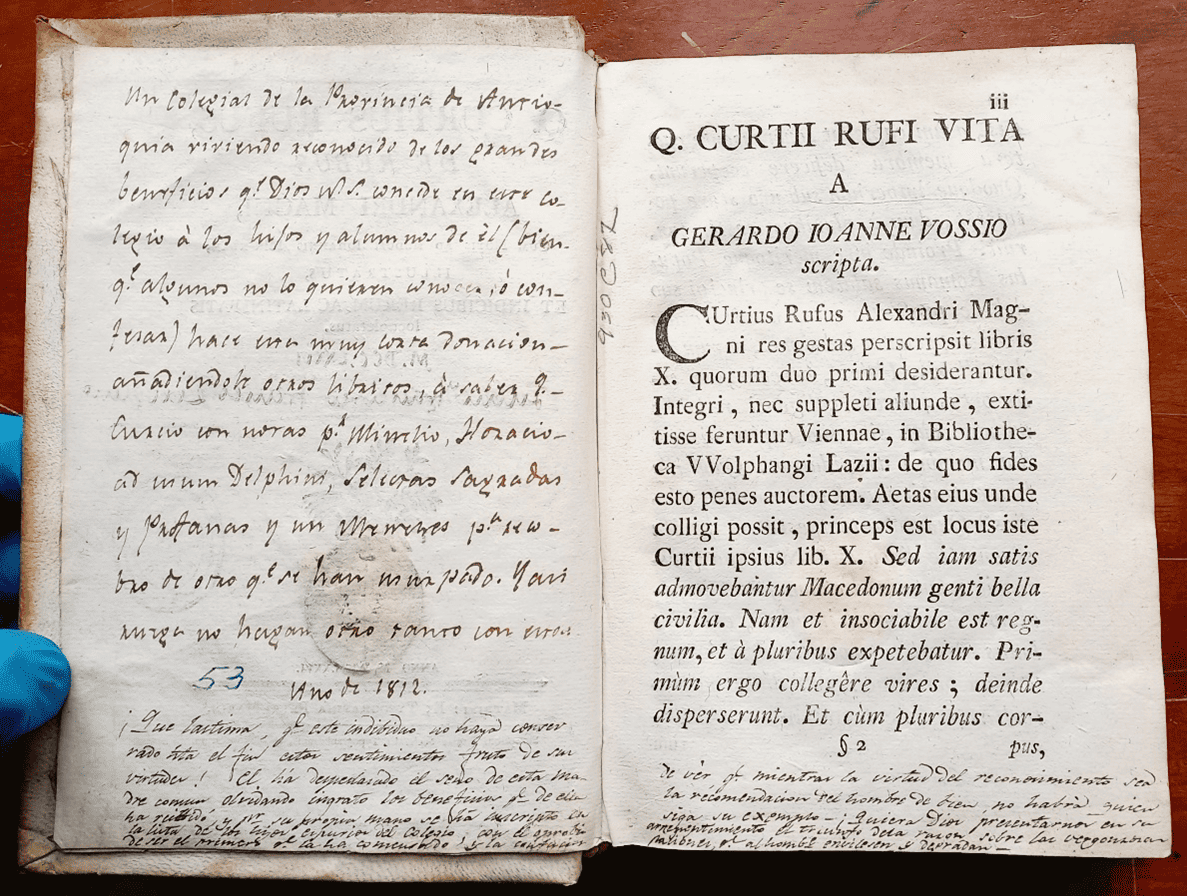 Un Colegial de la Provincia de Antio-
quia viviendo reconocido de los grandes
beneficios q.e Dios N. S. concede en este co-
legio à los hijos y alumnos de èl (bien-
q.e algunos no lo quieren conocer, ò con-
fesar) hace esta muy corta donacion-
añadiendole otros libricos, à saber Q.-
Curcio con notas p.r Minelio, Horacio-
ad usum Delphini, Selectas Sagradas
y Profanas y un Meneses p.a reco-
bro de otro q.e se han usurpado. Y asi
no hagan otro tanto con estos.
53
Año de 1812.
¡Que lastima, q.e este indibiduo no haya conser
vado hta el fin estos sentimientos fruto de sus
virtudes! El ha despedasado el seno de esta ma
dre comun olvidando ingrato los beneficios q.e de ella
ha recibido, y p.r su propia mano se ha inscripto en
la lista de los hijos espurios del Colegio, con el oprobio
de ser el primero q.e la ha comensado! y la
930C87
iii
Q. CURTII RUFI VITA
A
GERARDO IOANNE VOSSIO
scripta.
CUrtius Rufus Alexandri Mag-
ni res gestas perscripsit libris
X. quorum duo primi desiderantur.
Integri, nec suppleti aliunde, exti-
tisse feruntur Viennae, in Bibliothe-
ca VVolphangi Lazii: de quo fides
esto penes auctorem. Aetas eius unde
colligi possit, princeps est locus iste
Curtii ipsius lib. X. Sed iam satis
admovebantur Macedonum genti bella
civilia. Nam et insociabile est reg-
num, et à pluribus expetebatur. Pri-
mùm ergo collegêre vires; deinde
disperserunt. Et cùm pluribus cor-
§ 2 pus,
de vèr q.e mientras la virtud del reconocimiento sea
la recomendacion del hombre de bien, no habrà quien
siga su exemplo - ¡Quiera Dios presentarnos en su
arrepentimiento el triunfo de la razon sobre las vergonzosas
q.e al hombre envilesen y degradan -